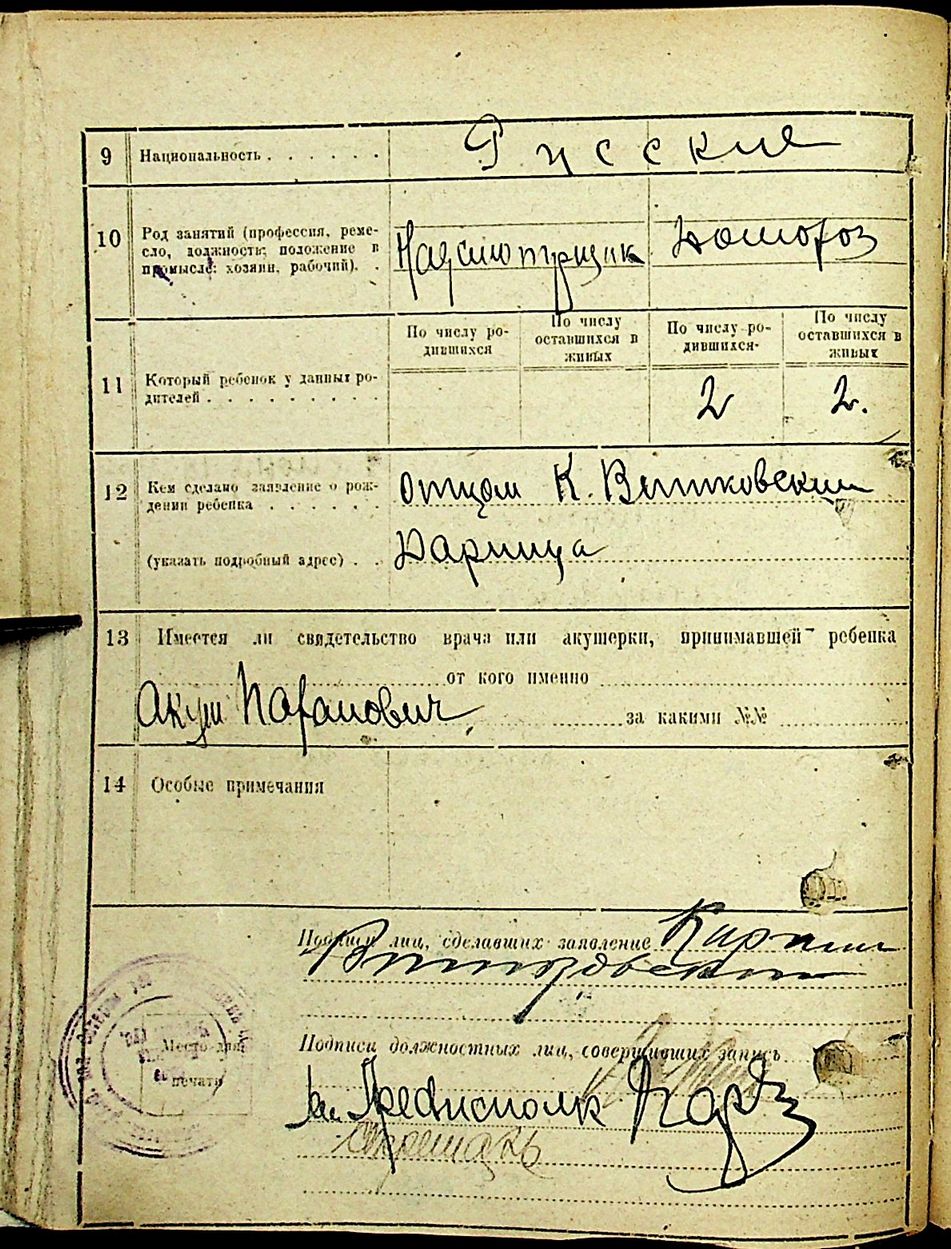 9 Национальность . . . . . . Русские
10 Род занятий (профессия, реме-
сло, должность; положение в
промысле: хозяин, рабочий). .
Надсмотрщик домохоз
По числу ро-
дившихся
По числу
оставшихся в
живых
По числу ро-
дившихся
По числу
оставшихся в
живых
11 Который ребенок у данных ро-
дителей . . . . . . . . . 2 2.
12 Кем сделано заявление о рож-
дении ребенка . . . . . . отцом К. Витковским
(указать подробный адрес) . .
13 Имеется ли свидетельство врача или акушерки, принимавшей ребенка
от кого именно
Акуш за какими №№
14 Особые примечания
Подписи лиц, сделавших заявление
Витковский
Место для
печати
Подписи должностных лиц, совершивших запись
Предисполк